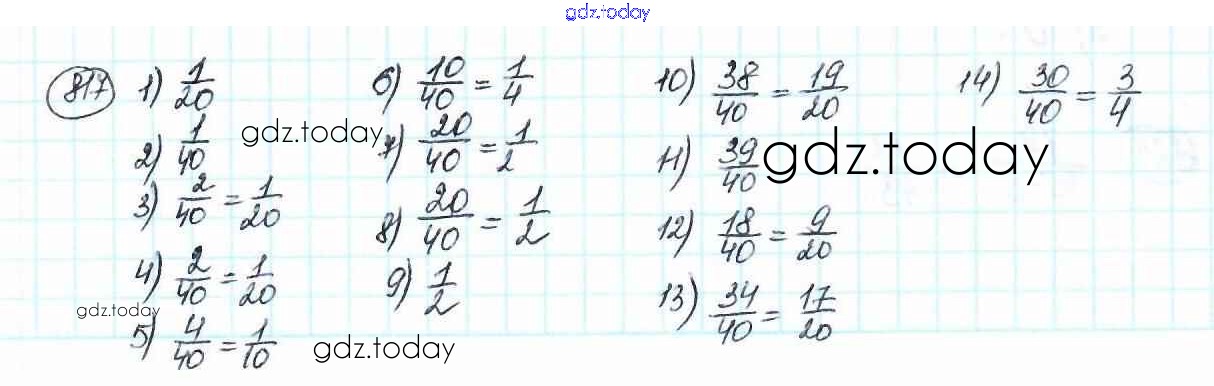 gdz.today
817
1) 1/20
2) 1/40
3) 2/40 = 1/20
4) 2/40 = 1/20
5) 4/40 = 1/10
6) 10/40 = 1/4
7) 20/40 = 1/2
8) 20/40 = 1/2
9) 1/2
10) 38/40 = 19/20
11) 39/40
12) 18/40 = 9/20
13) 34/40 = 17/20
14) 30/40 = 3/4
gdz.today
gdz.today
gdz.today
gdz.today